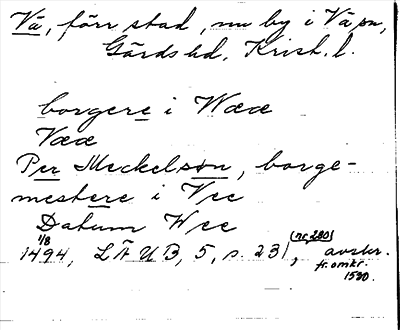 Vä, förr stad, nu by i Vä sn,
Gärds hd. Krist. l.
borgere i Wææ
Vææ
Per Meckelsøn, borge-
mestere i Vee
Datum Wee
1/8 1494, LÄUB, 5, s. 231 (nr 280), avskr.
fr. omkr.
1530.